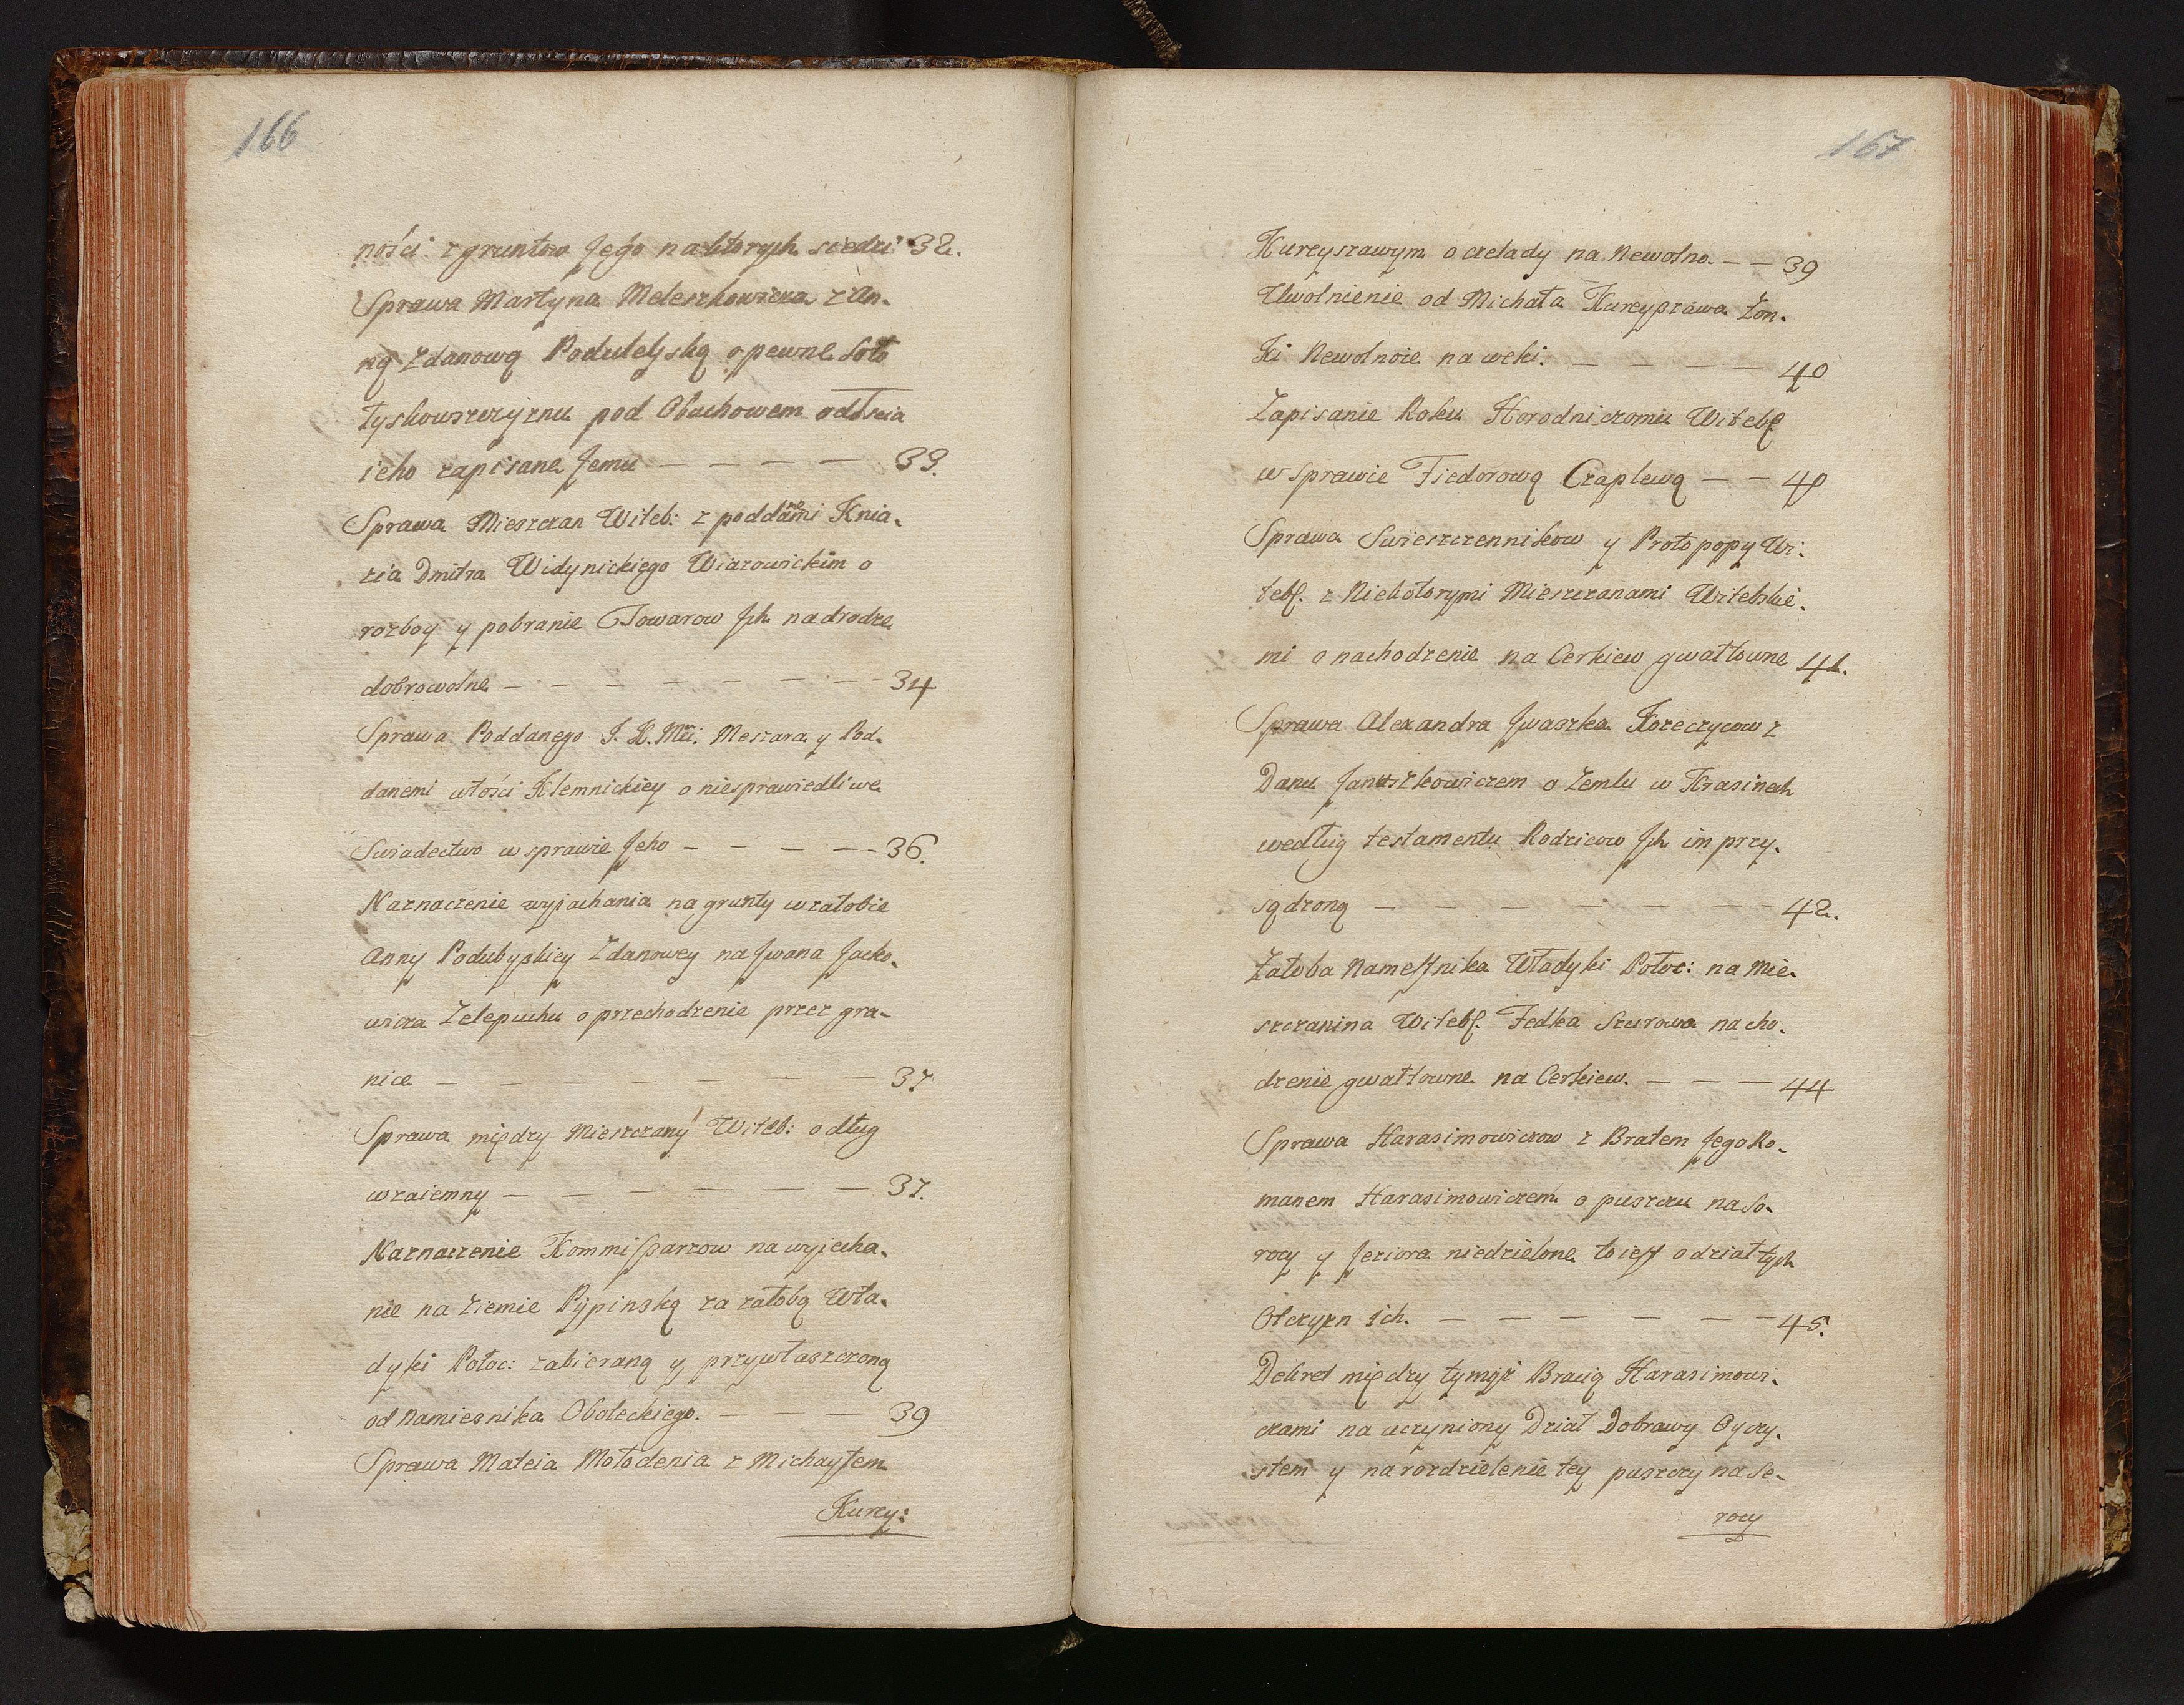 166
ności z gruntow Jego na ktorych siedzi 32.
Sprawa Martyna Meleszkowicza z An-
ną Zdanową Podubeyską o pewne Soło
tyskowszczyznu pod Obuchowem od Tścia
ieho zapisane Jemu — — — — 33.
Sprawa Mieszczan Witeb: z poddanemi Knia-
zia Dmitra Widynickiego Wiazowickim o
rozboy y pobranie Towarow Jch na drodze
dobrowolne — — — — — — — 34
Sprawa Poddanego J. K. Mci. Meszara y Pod-
danemi włości Klemnickiey o niesprawiedliwe
Swiadectwo w sprawie Jeho — — — — — 36.
Naznaczenie wyjachania na grunty w załobie
Anny Podubyskiey Zdanowey na Jwana Jacko-
wicza Zelepuchu o przechodzenie przez gra-
nice — — — — — — — 37
Sprawa między Mieszczany Witeb: o dług
wzaiemny — — — — — — 37.
Naznaczenie Kommissarzow na wyjecha-
nie na ziemie Pypinską za załobą Wła-
dyki Połoc: zabieraną y przywłaszczoną
od Namiesnika Oboleckiego. — — — 39
Sprawa Mateia Mołodenia z Michayłem
Kurcy:
167
Kurcyszawym o czelady na Newolno. — — 39
Uwolnienie od Michała Kurcyszawa Żon-
ki Newolnoie na weki. — — — — 40
Zapisanie Roku Horodniczomu Witebs.
w sprawie Fiedorową Czaplewą — — 40
Sprawa Swieszczennikow y Protopopy Wi-
tebs. z Niekotorymi Mieszczanami Witebskie-
mi o nachodzenie na Cerkiew gwałtowne 41.
Sprawa Alexandra Jwaszka Kozeczycow z
Danu Januszkowiczem o Zemlu w Krasinech
według testamentu Rodzicow Jch im przy-
sądzoną — — — — — — — 42.
Załoba Namestnika Władyki Połoc: na Mie-
szczanina Witebs. Fedka Szurowa nacho-
dzenie gwałtowne na Cerkiew. — — — 44
Sprawa Harasimowiczow z Bratem Jego Ro-
manem Harasimowiczem o puszczu na So-
rocy y Jeziora niedzielone to iest o dział tych
Otczyzn ich. — — — — — — 45.
Dekret między tymyż Bracią Harasimowi-
czami na uczyniony Dział Dobrawy Oyczy-
stem y na rozdzielenie tey puszczy na Se-
rocy